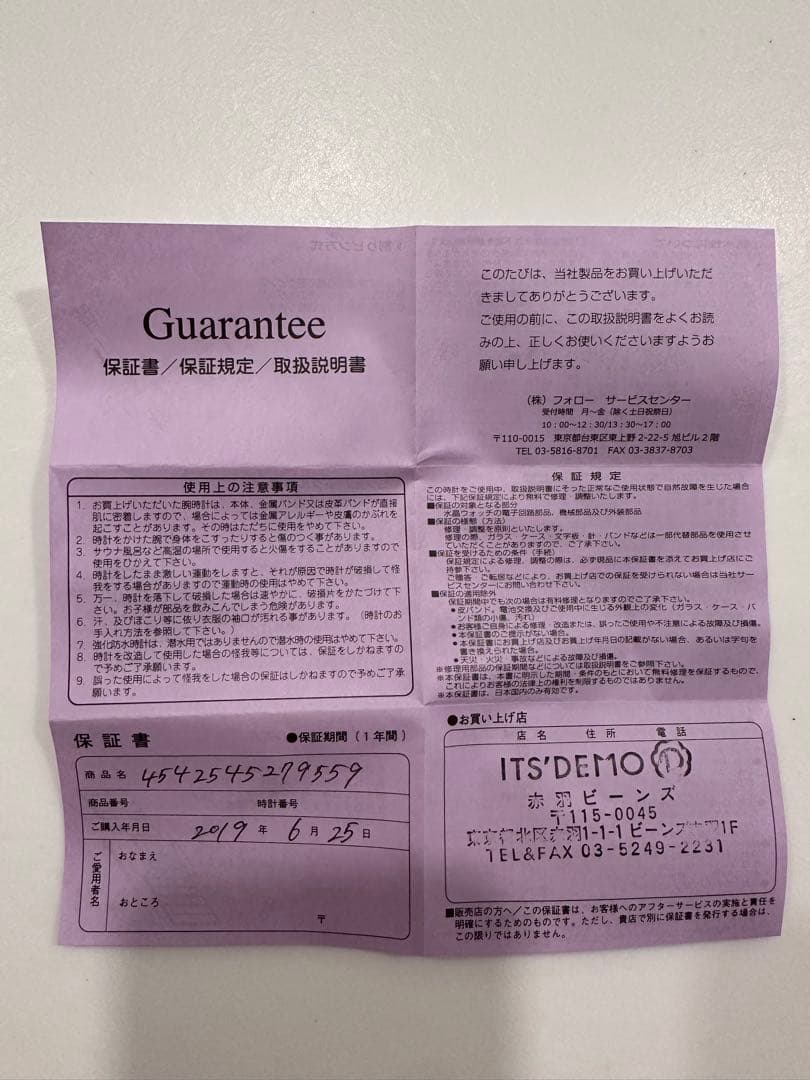 Guarantee
保証書／保証規定／取扱説明書
このたびは、当社製品をお買い上げいただ
きましてありがとうございます。
ご使用の前に、この取扱説明書をよくお読
みの上、正しくお使いくださいますようお
願い申し上げます。
（株）フォロー サービスセンター
受付時間 月～金（除く土日祝祭日）
10：00～12：30/13：30～17：00
〒110-0015 東京都台東区東上野 2-22-5 旭ビル２階
TEL 03-5816-8701 FAX 03-3837-8703
使用上の注意事項
1. お買上げいただいた腕時計は、本体、金属バンド又は皮革バンドが直接
肌に密着しますので、場合によっては金属アレルギーや皮膚のかぶれを
起こすことがあります。その時はただちに使用をやめて下さい。
2. 時計をかけた腕で身体をこすったりすると傷のつく事があります。
3. サウナ風呂など高温の場所で使用すると火傷をすることがありますので
使用をひかえて下さい。
4. 時計をしたまま激しい運動をしますと、それが原因で時計が破損して怪
我をする場合がありますので運動時の使用はやめて下さい。
5. 万一、時計を落下して破損した場合は速やかに、破損片をかたづけて下
さい。お子様が部品を飲みこんでしまう危険があります。
6. 汗、及びほこり等に依り衣服の袖口が汚れる事があります。（時計のお
手入れ方法を参照して下さい。）
7. 強化防水時計は、潜水用ではありませんので潜水時の使用はやめて下さい。
8. 時計を改造して使用した場合の怪我等については、保証をしかねますの
で予めご了承願います。
9. 誤った使用によって怪我をした場合の保証はしかねますので予めご了承
願います。
保証規定
この時計をご使用中、取扱説明書にそった正常なご使用状態で自然故障を生じた場合
には、下記保証規定により無料で修理・調整いたします。
■保証の対象となる部分
水晶ウォッチの電子回路部品、機械部品及び外装部品
■保証の様態（方法）
修理・調整を原則といたします。
修理の際、ガラス・ケース・文字板・針・バンドなどは一部代替部品を使用させ
ていただくことがありますので、ご了承下さい。
■保証を受けるための条件（手続）
保証規定による修理、調整の際は、必ず現品に本保証書を添えてお買上げ店にご
持参下さい。
ご贈答、ご転居などにより、お買上げ店での保証を受けられない場合は当社サー
ビスセンターにお問い合わせ下さい。
■保証の適用除外
保証期間中でも次の場合は有料修理となりますのでご了承下さい。
●皮バンド。電池交換及びご使用中に生じる外観上の変化（ガラス・ケース・バ
ンド類の小傷、汚れ）
●お客様ご自身による修理・改造または、誤ったご使用や不注意による故障及び損傷。
●本保証書のご提示がない場合。
●本保証書にお買上げ店及びお買上げ年月日の記載がない場合、あるいは字句を
書き換えられた場合。
●天災・火災、事故などによる故障及び損傷。
※修理用部品の保証期間などについては取扱説明書をご参照下さい。
※本保証書は、本書に明示した期間・条件のもとにおいて無料修理を保証するもので、
これによりお客様の法律上の権利を制限するものではありません。
※本保証書は、日本国内のみ有効です。
保証書 ●保証期間（１年間）
商品名 4542545279559
商品番号 時計番号
ご購入年月日 2019 年 6 月 25 日
ご愛用者名
おなまえ
おところ
〒
●お買い上げ店
店名 住所 電話
ITS'DEMO
赤羽ビーンズ
〒115-0045
東京都北区赤羽1-1-1 ビーンズ赤羽1F
TEL&FAX 03-5249-2231
■販売店の方へ／この保証書は、お客様へのアフターサービスの実施と責任を
明確にするためのものです。ただし、貴店で別に保証書を発行する場合は、
この限りではありません。